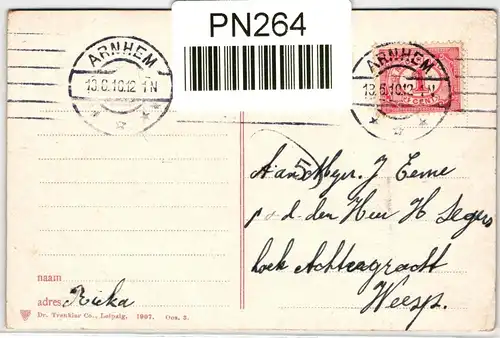 PN264
ARNHEM
13.6.10.12 1N
ARNHEM
13.6.10.12 1N
1
CENT
5
Aan Mejr. J Eeme
p/d den Heer H Segers
hoek Achtergracht
Weesp.
naam
adres Rieka
Dr. Trenkler Co., Leipzig, 1907. Oos. 3.